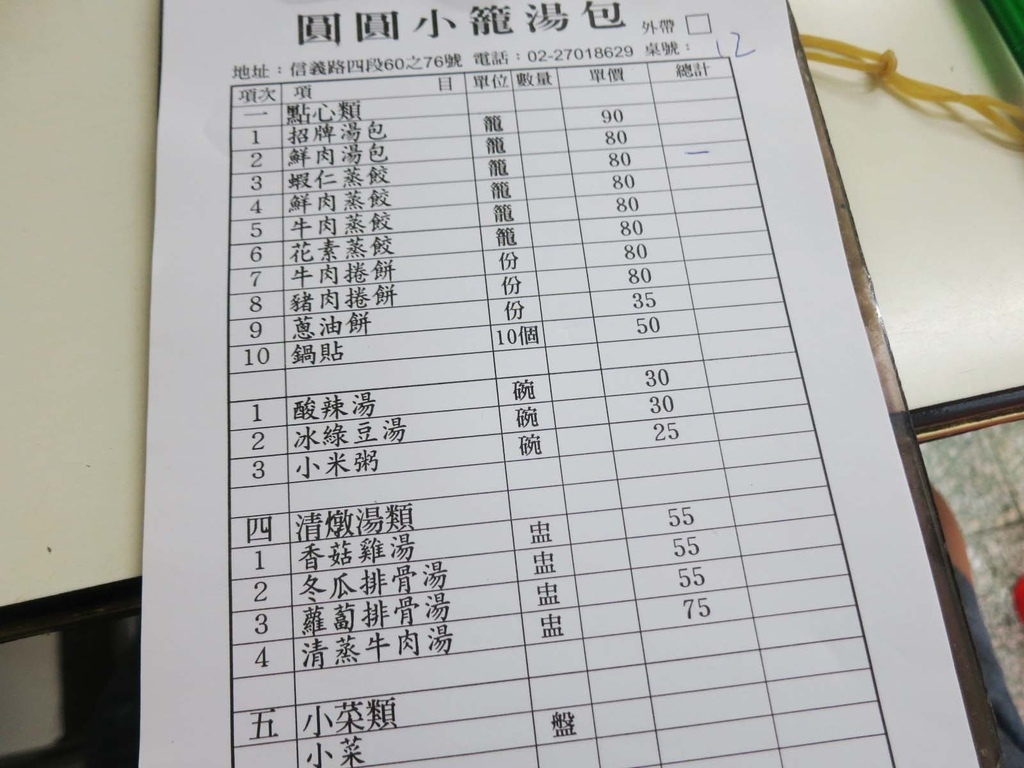 圓圓小籠湯包
外帶 □
地址：信義路四段60之76號 電話：02-27018629 桌號：12
項次 項 目 單位 數量 單價 總計
一 點心類
1 招牌湯包 籠 90
2 鮮肉湯包 籠 80
3 蝦仁蒸餃 籠 80
4 鮮肉蒸餃 籠 80
5 牛肉蒸餃 籠 80
6 花素蒸餃 籠 80
7 牛肉捲餅 份 80
8 豬肉捲餅 份 80
9 蔥油餅 份 35
10 鍋貼 10個 50
1 酸辣湯 碗 30
2 冰綠豆湯 碗 30
3 小米粥 碗 25
四 清燉湯類
1 香菇雞湯 盅 55
2 冬瓜排骨湯 盅 55
3 蘿蔔排骨湯 盅 55
4 清蒸牛肉湯 盅 75
五 小菜類
小菜 盤